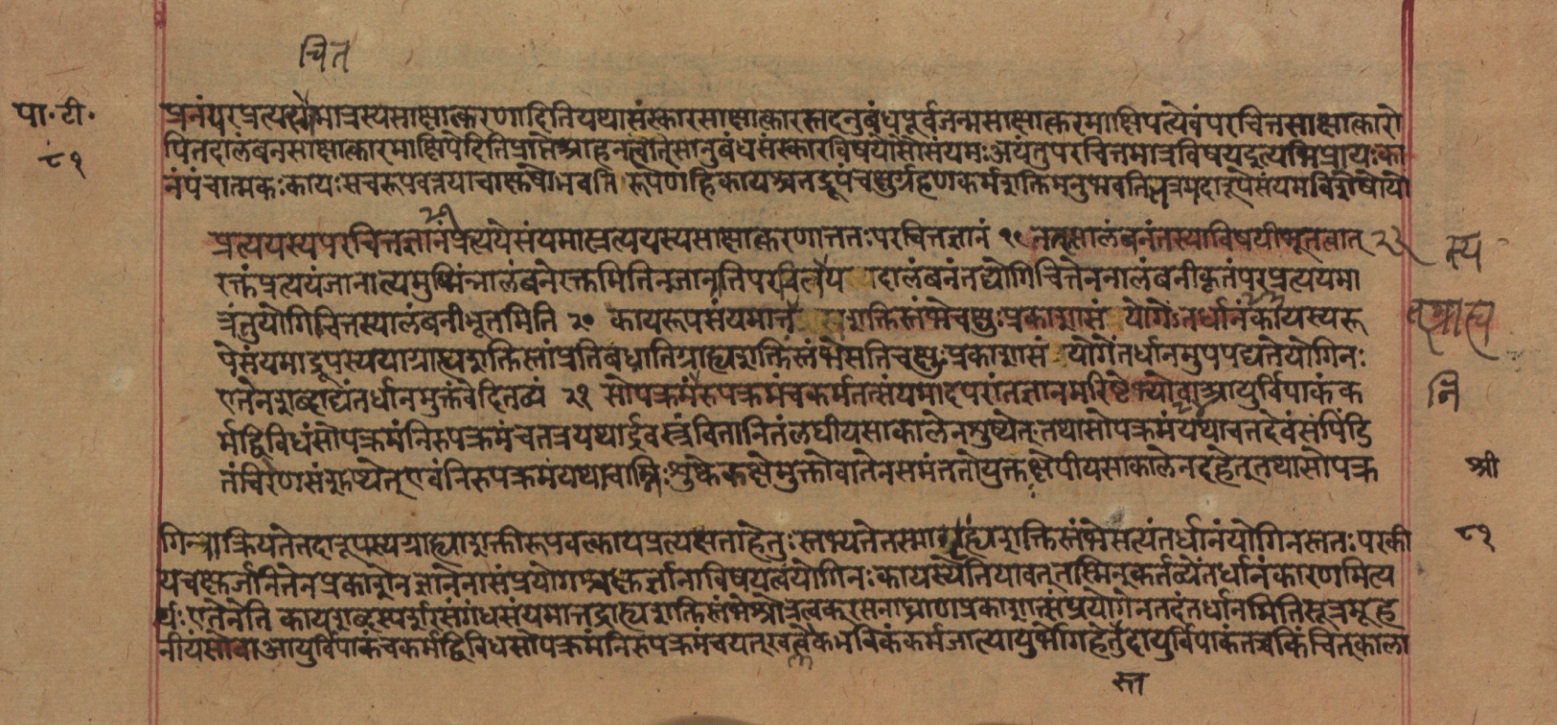 चित
पा॰ टी॰
८१
प्रनंपरप्रत्ययमात्रस्यसाक्षात्करणादितियथासंस्कारसाक्षात्कारस्तदनुबंधपूर्वजन्मसाक्षात्करमाक्षिपत्येवंपरचित्तसाक्षात्कारो
पितदालंबनसाक्षात्कारमाक्षिपेदितिप्राप्तेआहनत्वेतत्सानुबंधसंस्कारविषयोसौसंयमःअयंतुपरचित्तमात्रविषयइत्यभिप्रायःका
नंपंचात्मकःकायःसचरूपवत्तयाचाक्षुषोभवति रूपेणहिकायश्चतद्रूपंचचक्षुर्ग्रहणकर्मशक्तिमनुभवतितत्रयदारूपेसंयमविशेषोयो
प्रत्ययस्यपरचित्तज्ञानंप्रत्ययेसंयमात्प्रत्ययस्यसाक्षात्करणात्ततःपरचित्तज्ञानं १९ नतत्सालंबनंतस्याविषयीभूतत्वात्
रक्तंप्रत्ययंजानात्यमुष्मिंन्नालंबनेरक्तमितिनजानातिपरचित्तस्य यदालंबनंतद्योगिचित्तेननालंबनीकृतंपरप्रत्ययमा
त्रंतुयोगिचित्तस्यालंबनीभूतमिति २० कायरूपसंयमात्त शक्तिस्तंभेचक्षुःप्रकाशासं योगेंतर्धानंकायस्यरू
पेसंयमाद्रूपस्ययाग्राह्यशक्तिस्तांप्रतिबध्नातिग्राह्यशक्तिस्तंभेसतिचक्षुःप्रकाशासं योगेंतर्धानमुपपद्यतेयोगिनः
एतेनशब्दाद्यंतर्धानमुक्तंवेदितव्यं २१ सोपक्रमंनिरुपक्रमंचकर्मतत्संयमादपरांतज्ञानमरिष्टेभ्योवाआयुर्विपाकंक
र्मद्विविधंसोपक्रमंनिरुपक्रमंचतत्रयथार्द्रवस्त्रंवितानितंलघीयसाकालेनशुष्येत्तथासोपक्रमंयथाचतदेवंसंपिंडि
तंचिरेणसंशुष्येत्एवंनिरुपक्रमंयथावाग्निःशुष्केकक्षेमुक्तोवातेनसमंततोयुक्तःक्षेपीयसाकालेनदहेत्तथासोपक्र
नि
श्री
८१
गिनाक्रियतेतदारूपस्यग्राह्याशक्तीरूपवत्कायप्रत्यक्षताहेतुःस्तभ्यतेतस्माद्ग्राह्यशक्तिस्तंभेसत्यंतर्धानंयोगिनस्ततःपरकी
यचक्षुर्जनितेनप्रकाशेनज्ञानेनासंप्रयोगश्चक्षुर्ज्ञानाविषयत्वंयोगिनःकायस्येतियावत्तस्मिन्कर्तव्येंतर्धानंकारणमित्य
र्थःएतेनेति कायशब्दस्पर्शरसगंधसंयमात्तद्ग्राह्यशक्तिस्तंभेश्रोत्रत्वक्रसनाघ्राणप्रकाशासंप्रयोगेनतदंतर्धानमितिसूत्रमूह
नीयंसोवाआयुर्विपाकंचकर्मद्विविधसोपक्रमंनिरुपक्रमंचयत्खल्वेकभविकंकर्मजात्यायुर्भोगहेतुस्तदायुर्विपाकंतच्चकिंचित्काला
स्त